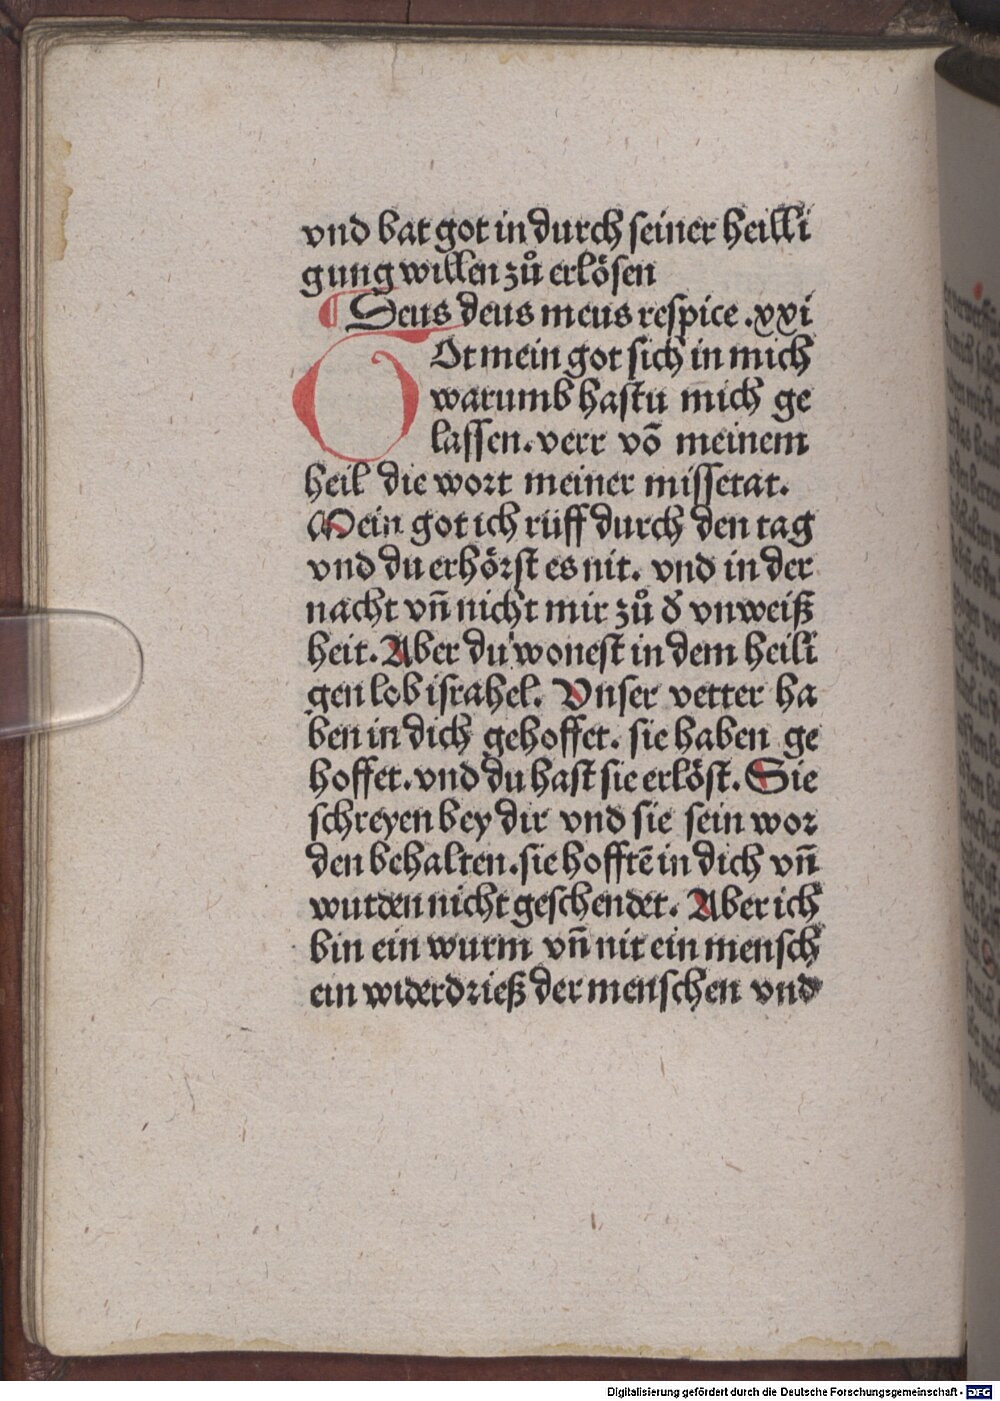 vnd bat got in durch seiner heilli
gung willen zů erlösen
¶ Deus deus meus respice .xxi
GOt mein got sich in mich
warumb hastu mich ge
lassen. verr võ meinem
heil die wort meiner missetat.
Mein got ich rüff durch den tag
vnd du erhörst es nit. vnd in der
nacht vñ nicht mir zů đ vnweiß
heit. Aber du wonest in dem heili
gen lob israhel. Vnser vetter ha
ben in dich gehoffet. sie haben ge
hoffet. vnd du hast sie erlöst. Sie
schreyen bey dir vnd sie sein wor
den behalten. sie hofftẽ in dich vñ
wurden nicht geschendet. Aber ich
bin ein wurm vñ nit ein mensch
ein widerdrieß der menschen vnd
Digitalisierung gefördert durch die Deutsche Forschungsgemeinschaft - DFG